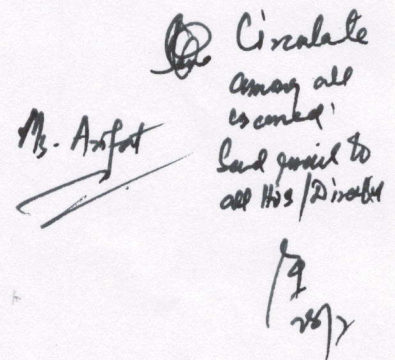 Circulate
among all
concerned.
Send email to
all HoDs / Director
Ms. Arifat
28/2